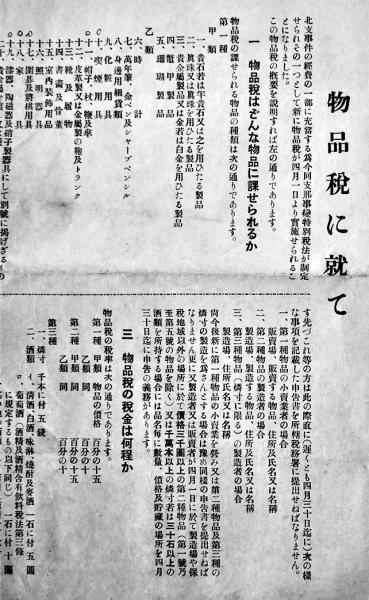 物品税に就て
北支事件の軍費の一部に充當する爲今回支那事變特別税法が制定
せられその一つとして新に物品税が四月一日より實施せられるこ
とになりました。
この物品税の概要を説明すれば左の通りであります。
一 物品税はどんな物品に課せられるか
物品税の課せられる物品の種類は次の通りであります。
第一種
甲類
一、貴石若は半貴石又は之を用ひたる製品
二、眞珠又は眞珠を用ひたる製品
三、貴金屬製品又は金若は白金を用ひたる製品
四、鼈甲製品
五、珊瑚製品
乙類
六、時計
七、萬年筆、金ペン及シャープペンシル
八、身邊用細貨類
九、化粧用具
十、喫煙用具
十一、帽子、杖、鞭及傘
十二、皮革製又は金屬製の鞄及トランク
十三、靴及履物
十四、書畫及骨董
十五、室內裝飾用品
十六、照明器具
十七、圍碁及將棋用具
十八、家具
十九、漆器、陶磁器及硝子製器具にして別號に揭げざるもの
す先づこれ等の方は此の際直に（遲くとも四月三十日迄に）次の樣
な事項を記載した申告書を所轄税務署に提出せねばなりません。
一、第一種物品の小賣業者の場合
販賣場、販賣する物品、住所及氏名又は名稱
二、第二種物品の製造者の場合
製造場、製造する物品、住所及氏名又は名稱
三、第三種物品（燐寸に限る）の製造者の場合
製造場、住所氏名又は名稱
尙今後新に第一種物品の小賣業を營み又は第二種物品及第三種の
燐寸の製造を爲さんとする場合は豫め同樣の申告書を提出せねば
なりません更に又製造者又は販賣者が四月一日に於て製造場や保
税地域以外の場所に於て價格三千圓以上の第二種物品（第一號乃
至第五號の物品を除く）又は千萬本以上の燐寸若は三十石以上の
酒類を所持する場合には品名每に數量、價格及貯藏の場所を四月
三十日迄に申告の義務があります。
三 物品税の税金は何程か
物品税の税率は次の通りであります。
第一種 甲類 物品の價格 百分の十五
乙類 同 百分の十
第二種 甲類 同 百分の十五
乙類 同 百分の十
第三種
一、燐寸 千本に付 五錢
二、酒類 イ、清酒、白酒、味淋、燒酎及麥酒 一石に付 五圓
ロ、葡萄酒（酒精及酒精含有飲料税法第三條
に規定するもの以下同じ） 一石に付 十圓